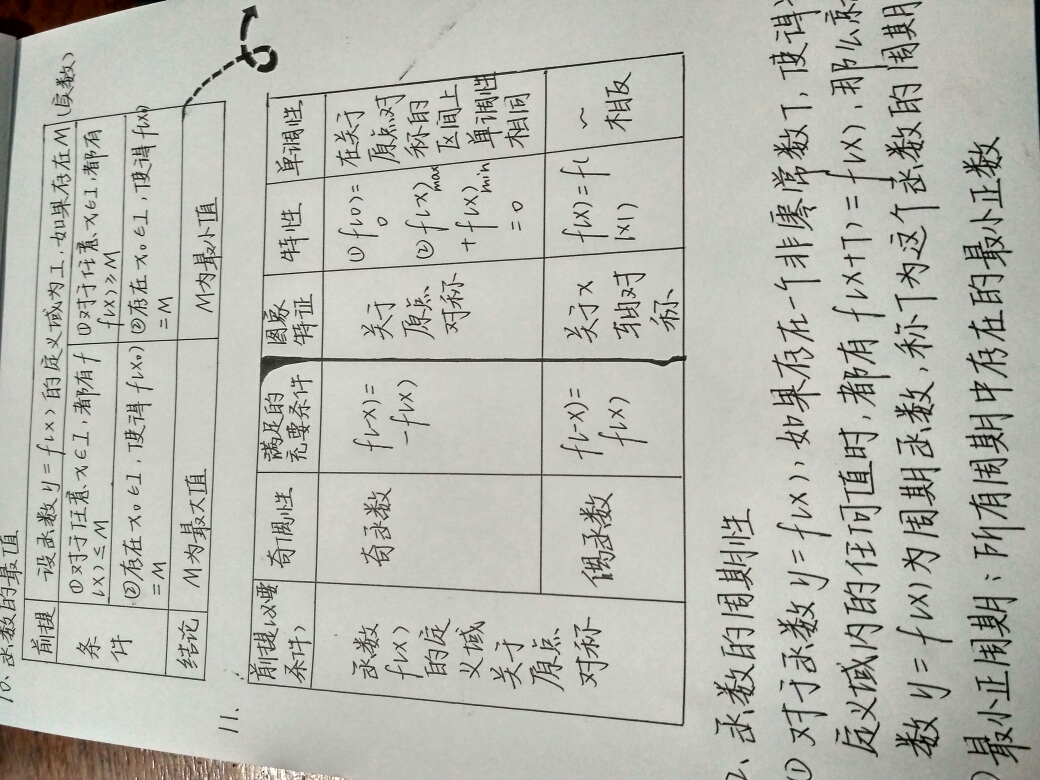 10、函数的最值
前提
设函数y=f(x)的定义域为I,如果存在M(实数)
条
件
①对于任意x∈I,都有f
(x)≤M
②存在x₀∈I,使得f(x₀)
=M
①对于任意x∈I,都有
f(x)≥M
②存在x₀∈I,使得f(x₀)
=M
结论
M为最大值
M为最小值
11、
前提(必要
条件)
奇偶性
满足的
充要条件
图象
特征
特性
单调性
函数
f(x)
的定
义域
关于
原点
对称
奇函数
f(-x)=
-f(x)
关于
原点
对称
①f(0)=
0
②f(x)max
+f(x)min
=0
在关于
原点对
称的
区间上
单调性
相同
偶函数
f(-x)=
f(x)
关于x
轴对
称、
f(x)=f(
|x|)
~
相反
2、函数的周期性
①对于函数y=f(x),如果存在一个非零常数T,使得
定义域内的任何值时,都有f(x+T)=f(x),那么
数y=f(x)为周期函数,称T为这个函数的周期
)最小正周期:所有周期中存在的最小正数